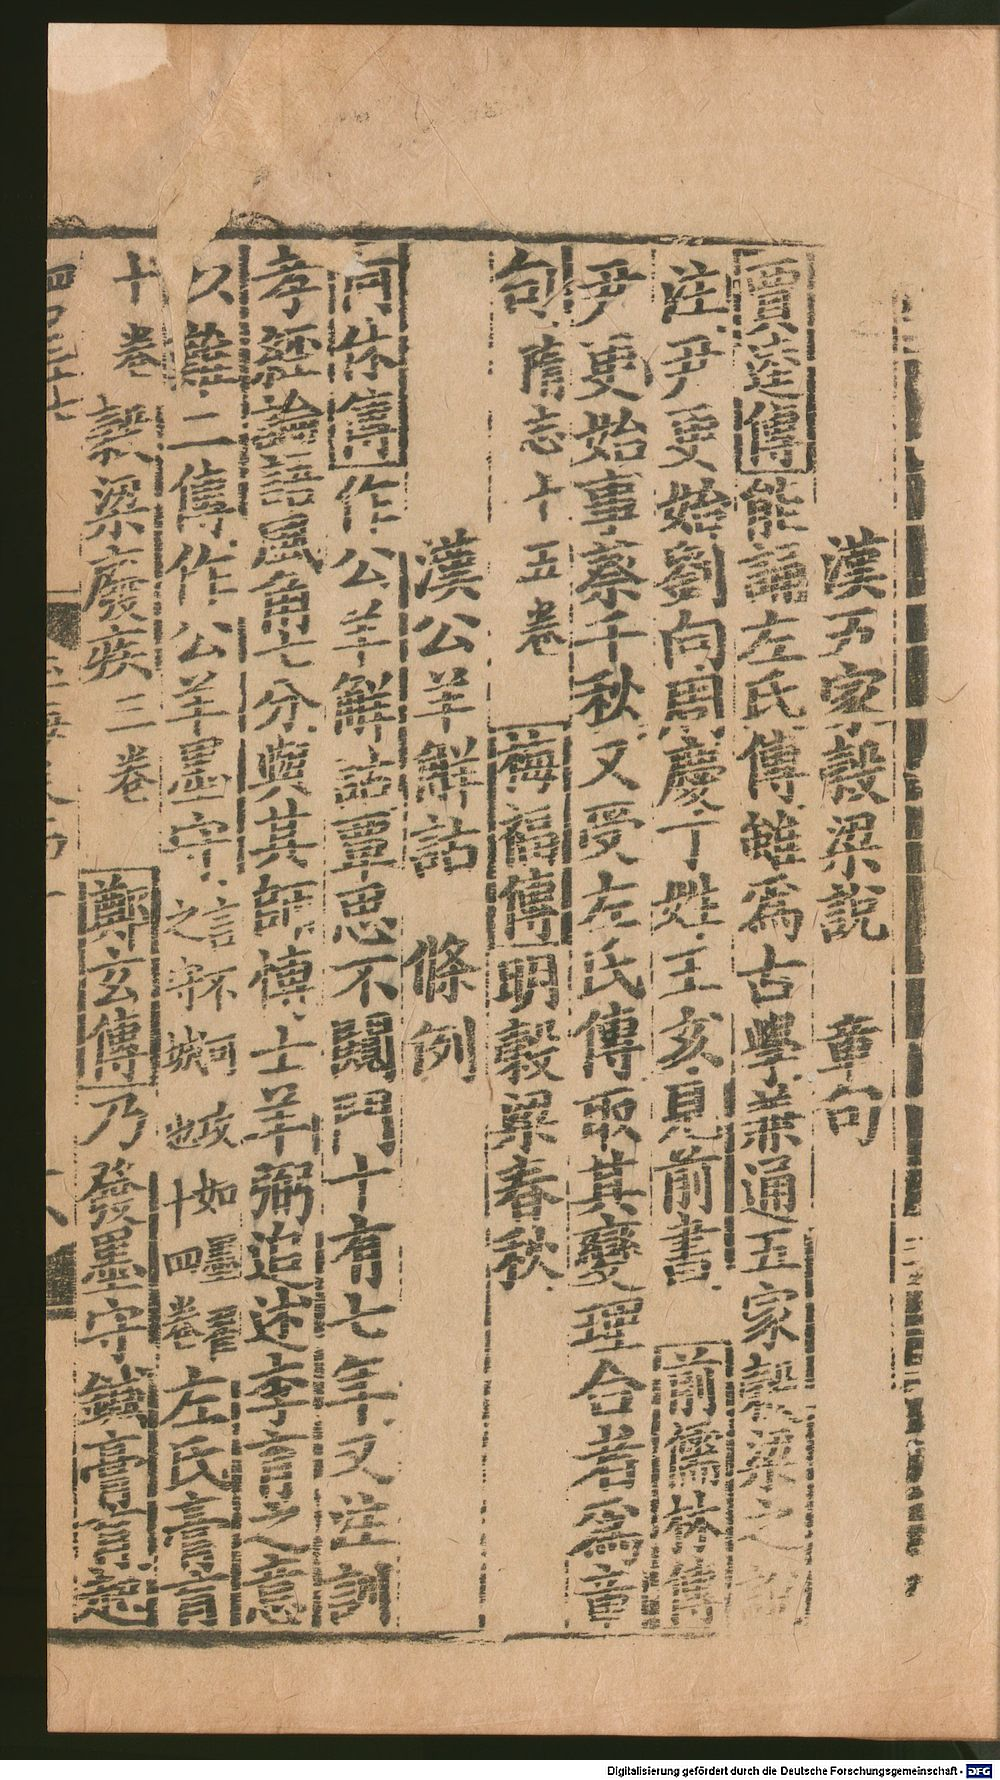 漢五家穀梁說　章句
賈逵傳能誦左氏傳雖爲古學兼通五家穀梁之說
注尹更始劉向周慶丁姓王亥見前書　前儒林傳
尹更始事蔡千秋又受左氏傳取其變理合者爲章
句隋志十五卷　梅福傳明穀梁春秋
漢公羊解詁　條例
何休傳作公羊解詁覃思不闚門十有七年又注訓
孝經論語風角七分與其師博士羊弼追述李育之意
以難二傳作公羊墨守言不可攻如墨翟之守城也十四卷左氏膏肓
十卷穀梁廢疾三卷　鄭玄傳乃發墨守鍼膏肓起
Digitalisierung gefördert durch die Deutsche Forschungsgemeinschaft - DFG